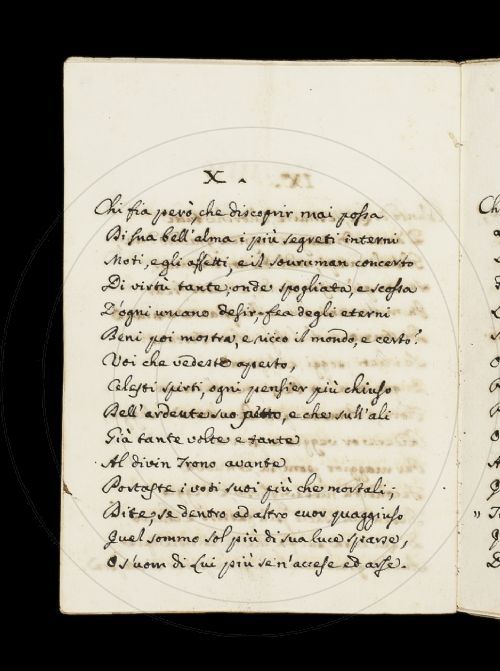 X.
Chi fia però, che discoprir mai possa
Di sua bell'alma i più segreti interni
Moti, e gli affetti, e il souruman concerto
Di virtù tante, onde spogliata, e scossa
D'ogni umano desir, fea degli eterni
Beni poi mostra, e ricco il mondo, e certo?
Voi che vedeste aperto,
Celesti spirti, ogni pensier più chiuso
Dell'ardente suo petto, e che sull'ali
Già tante volte e tante
Al divin Trono avante
Portaste i voti suoi più che mortali;
Dite, se dentro ad altro cuor quaggiuso
Quel sommo sol più di sua luce sparse,
O s'uom di Lui più se n'accese ed arse.